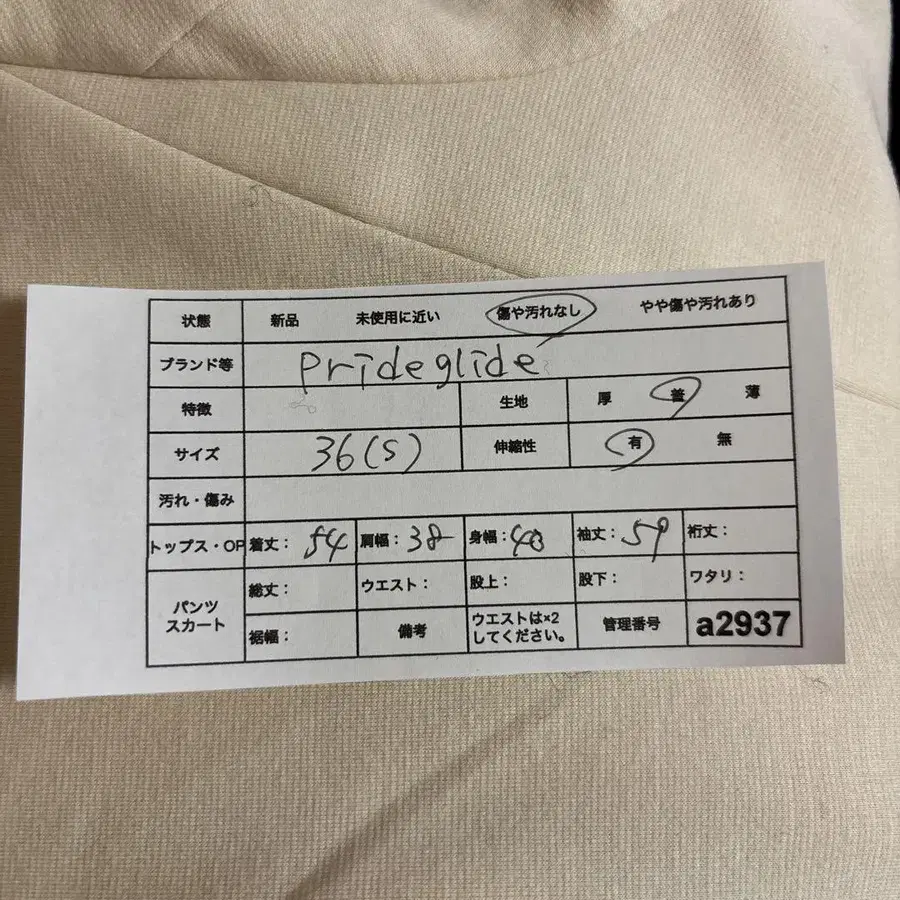 状態 新品 未使用に近い 傷や汚れなし やや傷や汚れあり
ブランド等 prideglide
特徴 生地 厚 普 薄
サイズ 36(S) 伸縮性 有 無
汚れ・傷み
トップス・OP 着丈: 54 肩幅: 38 身幅: 40 袖丈: 59 裄丈:
パンツ スカート 総丈: ウエスト: 股上: 股下: ワタリ:
裾幅: 備考 ウエストは×2 してください。 管理番号 a2937